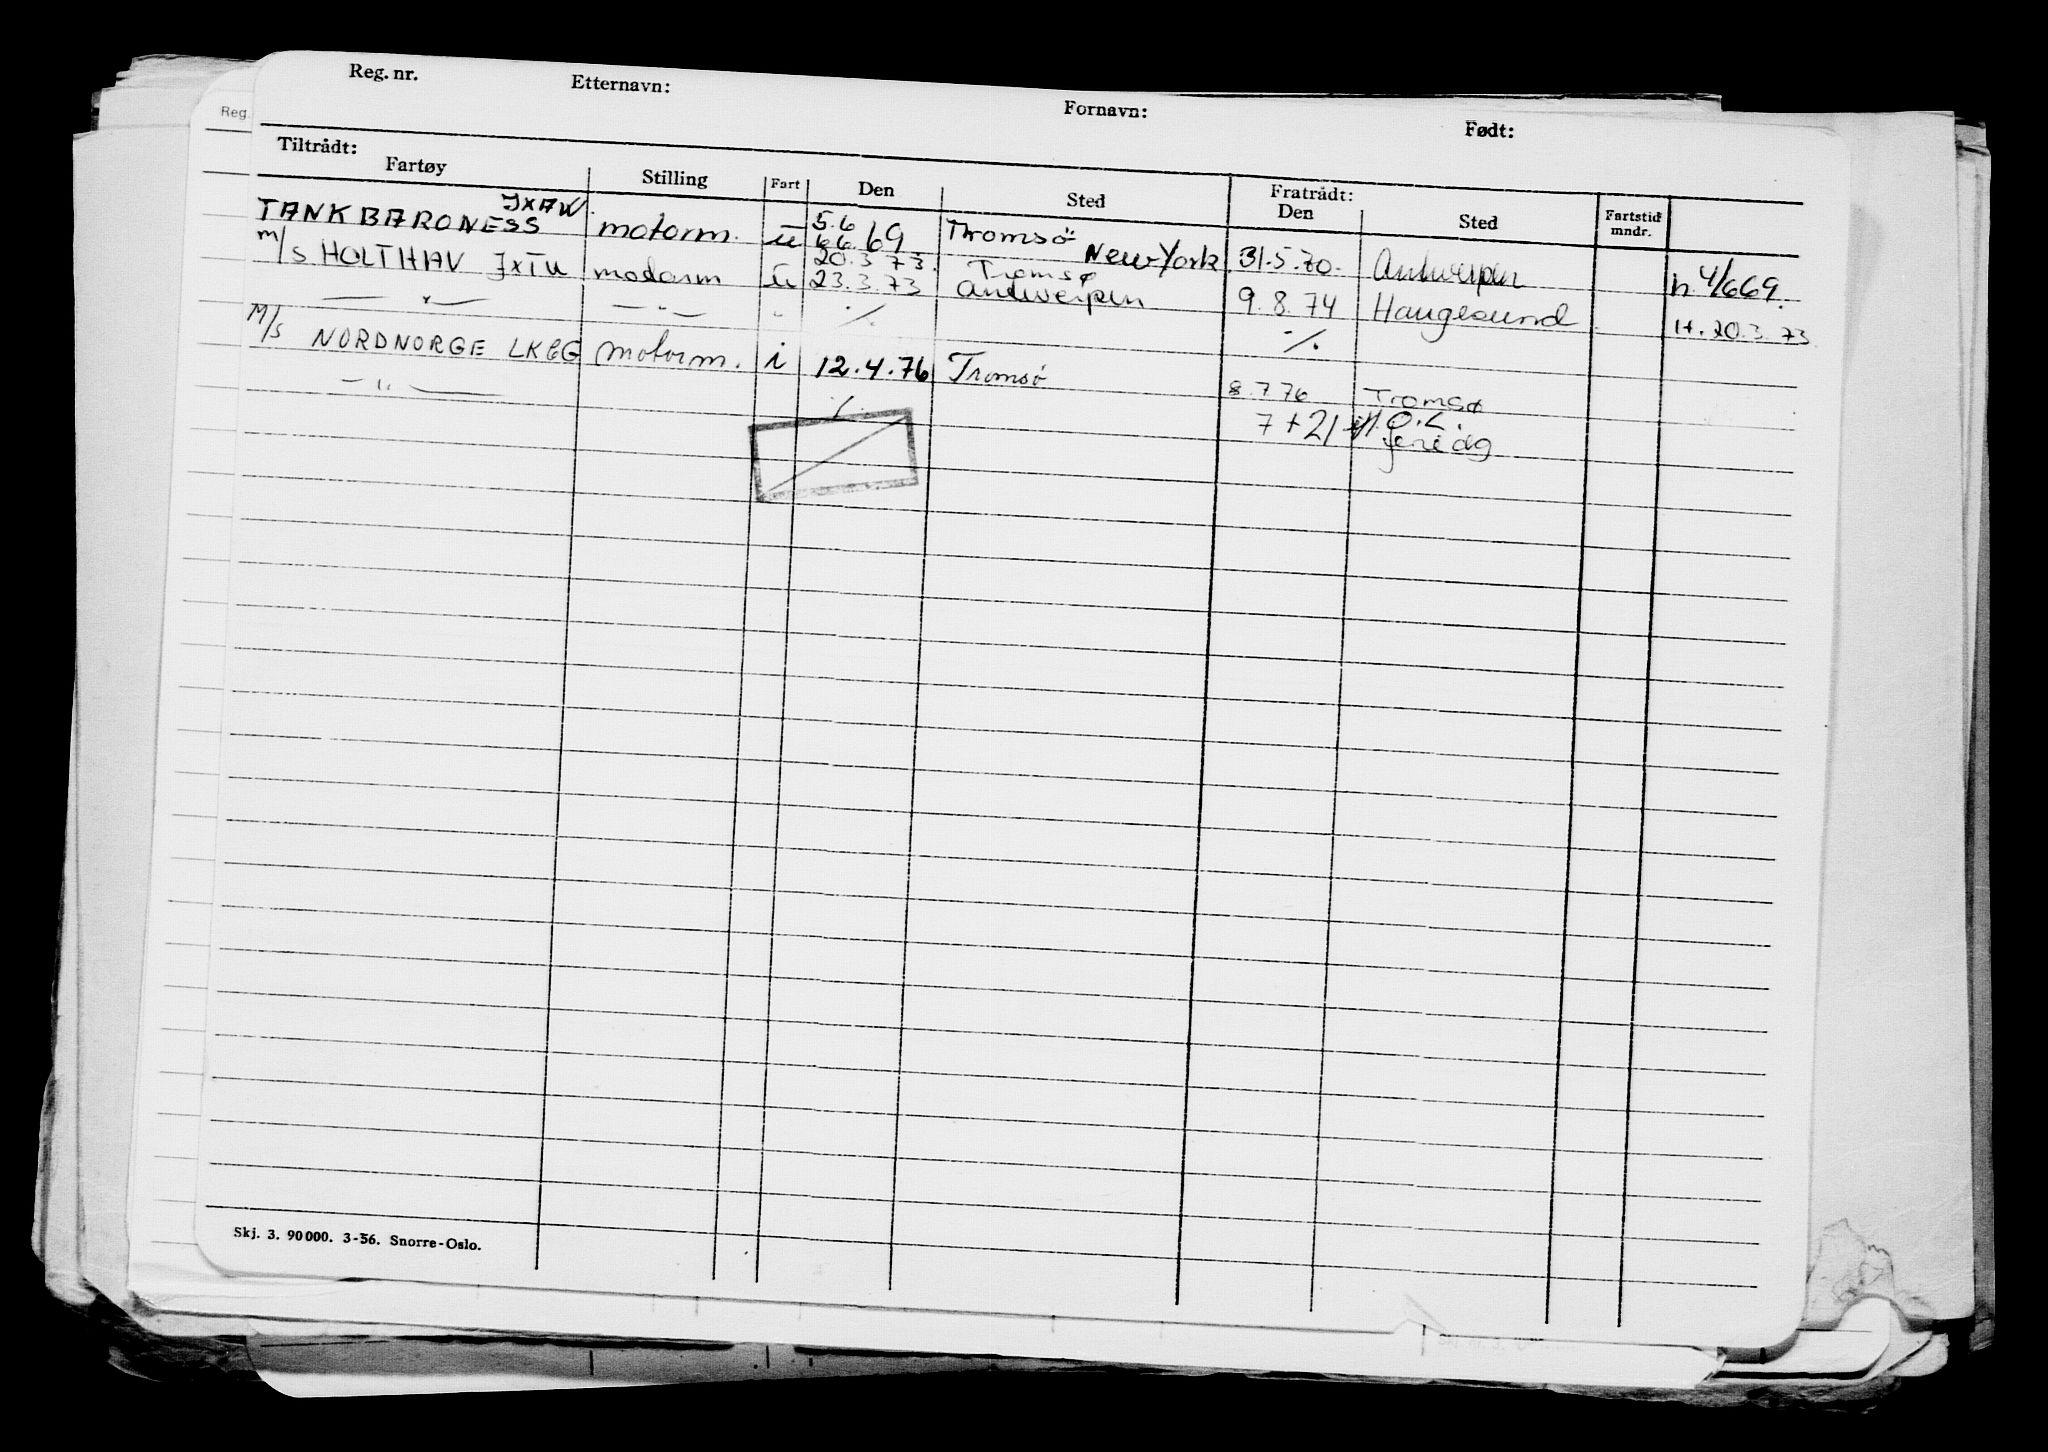 Reg. nr. Etternavn: Fornavn: Født:
Reg.
Tiltrådt: Fratrådt:
Fartøy Stilling Fart Den Sted Den Sted Fartstid mndr.
TANKBARONESS JXAW motorm. ū 5.6 6.6.69 Tromsø New York 31.5.70. Antwerpen h. 4/669.
M/S HOLTHAV JXTU motorm ū 20.3.73. 23.3.73 Tromsø Antwerpen 9.8.74 Haugesund H. 20.3.73
— " — — " — " ·/. ·/.
M/S NORDNORGE LKGG motorm. i 12.4.76 Tromsø 8.7.76 Tromsø
— " — ·/. 7 + 21 feriedg
Skj. 3. 90 000. 3-56. Snorre-Oslo.